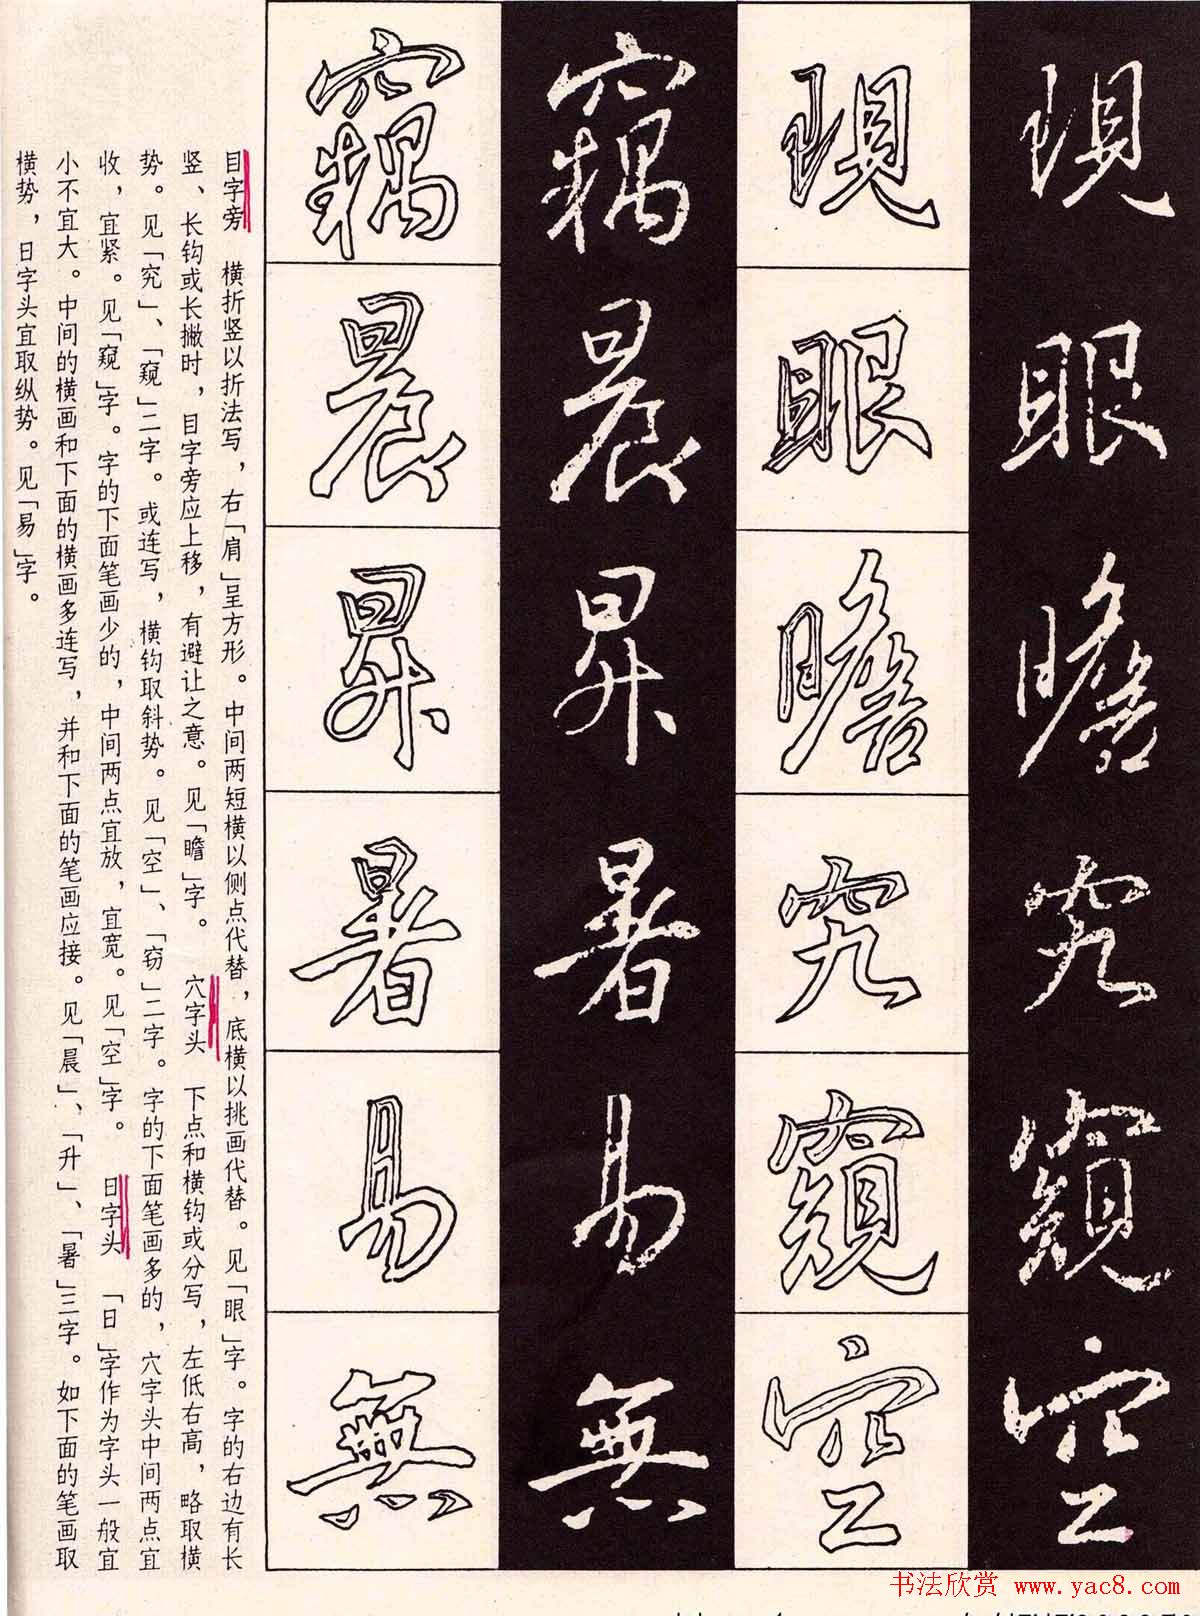 現
眼
瞻
究
窺
空
現
眼
瞻
究
窺
空
竊
晨
昇
暑
易
無
竊
晨
昇
暑
易
無
目字旁　横折竖以折法写，右「肩」呈方形。中间两短横以侧点代替，底横以挑画代替。见「眼」字。字的右边有长
竖、长钩或长撇时，目字旁应上移，有避让之意。见「瞻」字。　穴字头　下点和横钩或分写，左低右高，略取横
势。见「究」、「窥」二字。或连写，横钩取斜势。见「空」、「窃」二字。字的下面笔画多的，穴字头中间两点宜
收，宜紧。见「窥」字。字的下面笔画少的，中间两点宜放，宜宽。见「空」字。　日字头　「日」字作为字头一般宜
小不宜大。中间的横画和下面的横画多连写，并和下面的笔画应接。见「晨」、「升」、「暑」三字。如下面的笔画取
横势，日字头宜取纵势。见「易」字。
书法欣赏 www.yac8.com